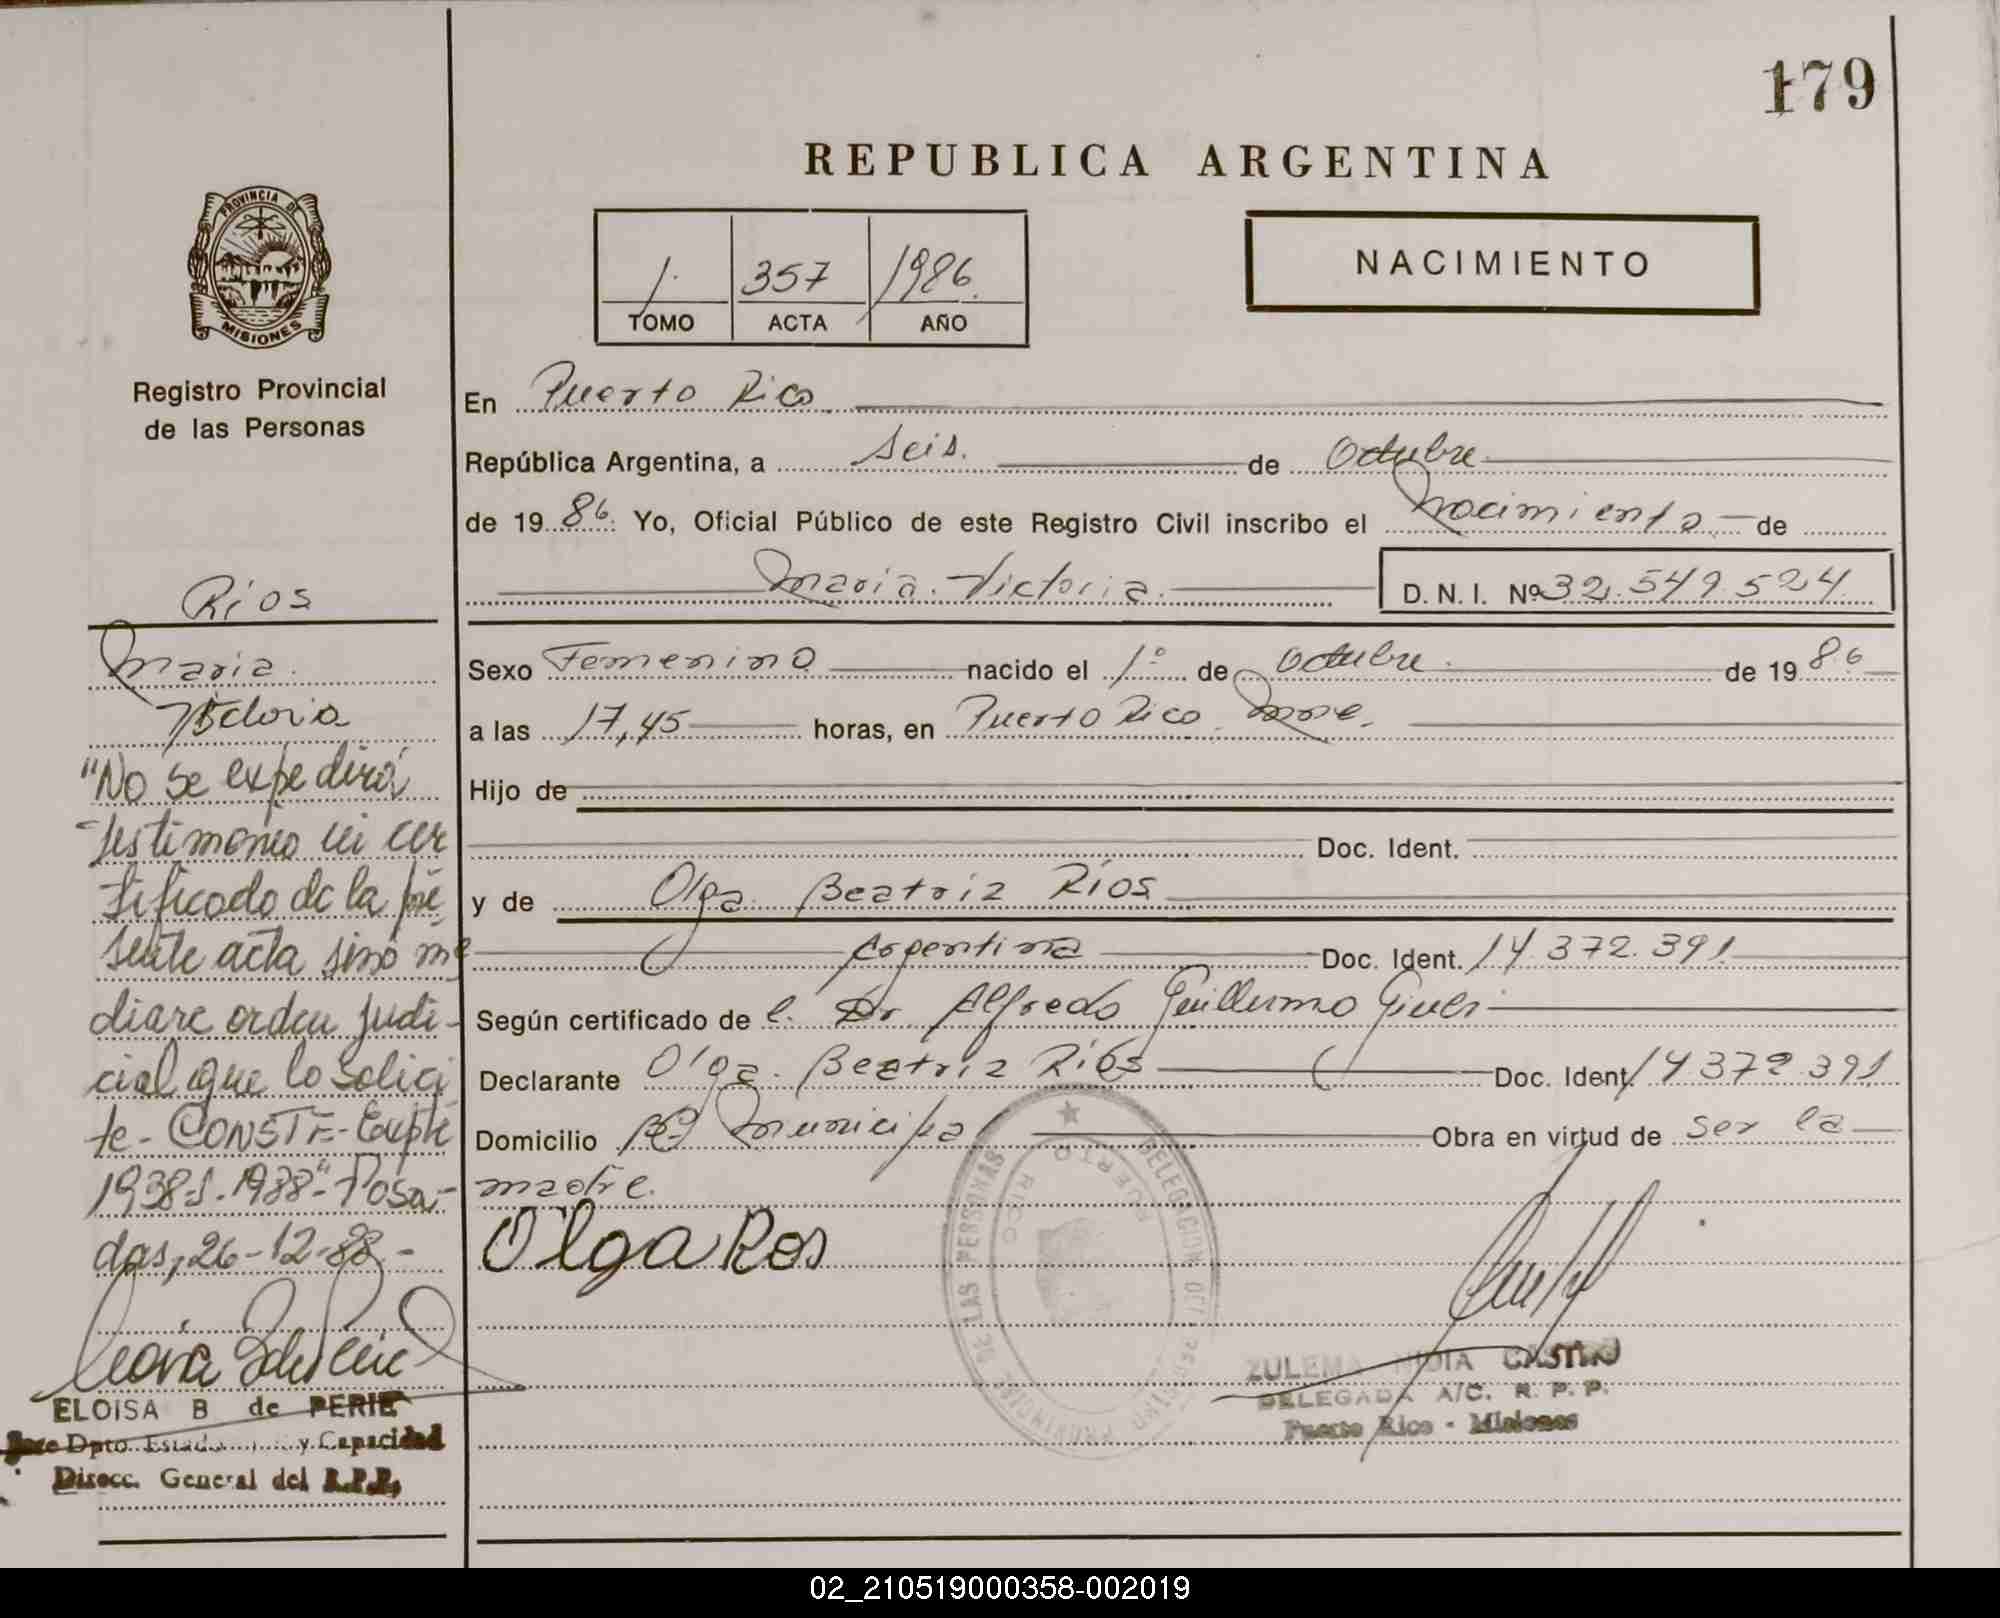 179
REPUBLICA ARGENTINA
PROVINCIA DE
MISIONES
Registro Provincial
de las Personas
1. 357 1986.
TOMO ACTA AÑO
NACIMIENTO
En Puerto Rico.
República Argentina, a seis. de Octubre
de 19 86. Yo, Oficial Público de este Registro Civil inscribo el Nacimiento de
Maria Victoria. D. N. I. Nº 32.549.524
Sexo Femenino nacido el 1º de Octubre. de 19 86
a las 17,45 horas, en Puerto Rico. Mnes.
Hijo de
Doc. Ident.
y de Olga Beatriz Ríos
Argentina Doc. Ident. 14.372.391
Según certificado de l. Dr Alfredo Guillermo
Declarante Olga Beatriz Ríos Doc. Ident 14 372.391
Domicilio Bº Municipal Obra en virtud de ser la
madre.
Olga Ros
Ríos
Maria
Victoria
"No se expedirá
testimonio ni cer
tificado de la pre
sente acta sino me
diare orden judi-
cial que lo solici
te- CONSTE- Expte
1938-S-1988"- Posa-
das, 26-12-88-
ELOISA B de PERIE
Jefe Dpto. Estado y Capacidad
Direcc. General del R.P.P.
DELEGACION DEL REGISTRO PROVINCIAL DE LAS PERSONAS
PUERTO RICO
ZULEMA NIDIA CASTRO
DELEGADA A/C. R. P. P.
Puerto Rico - Misiones
02_210519000358-002019